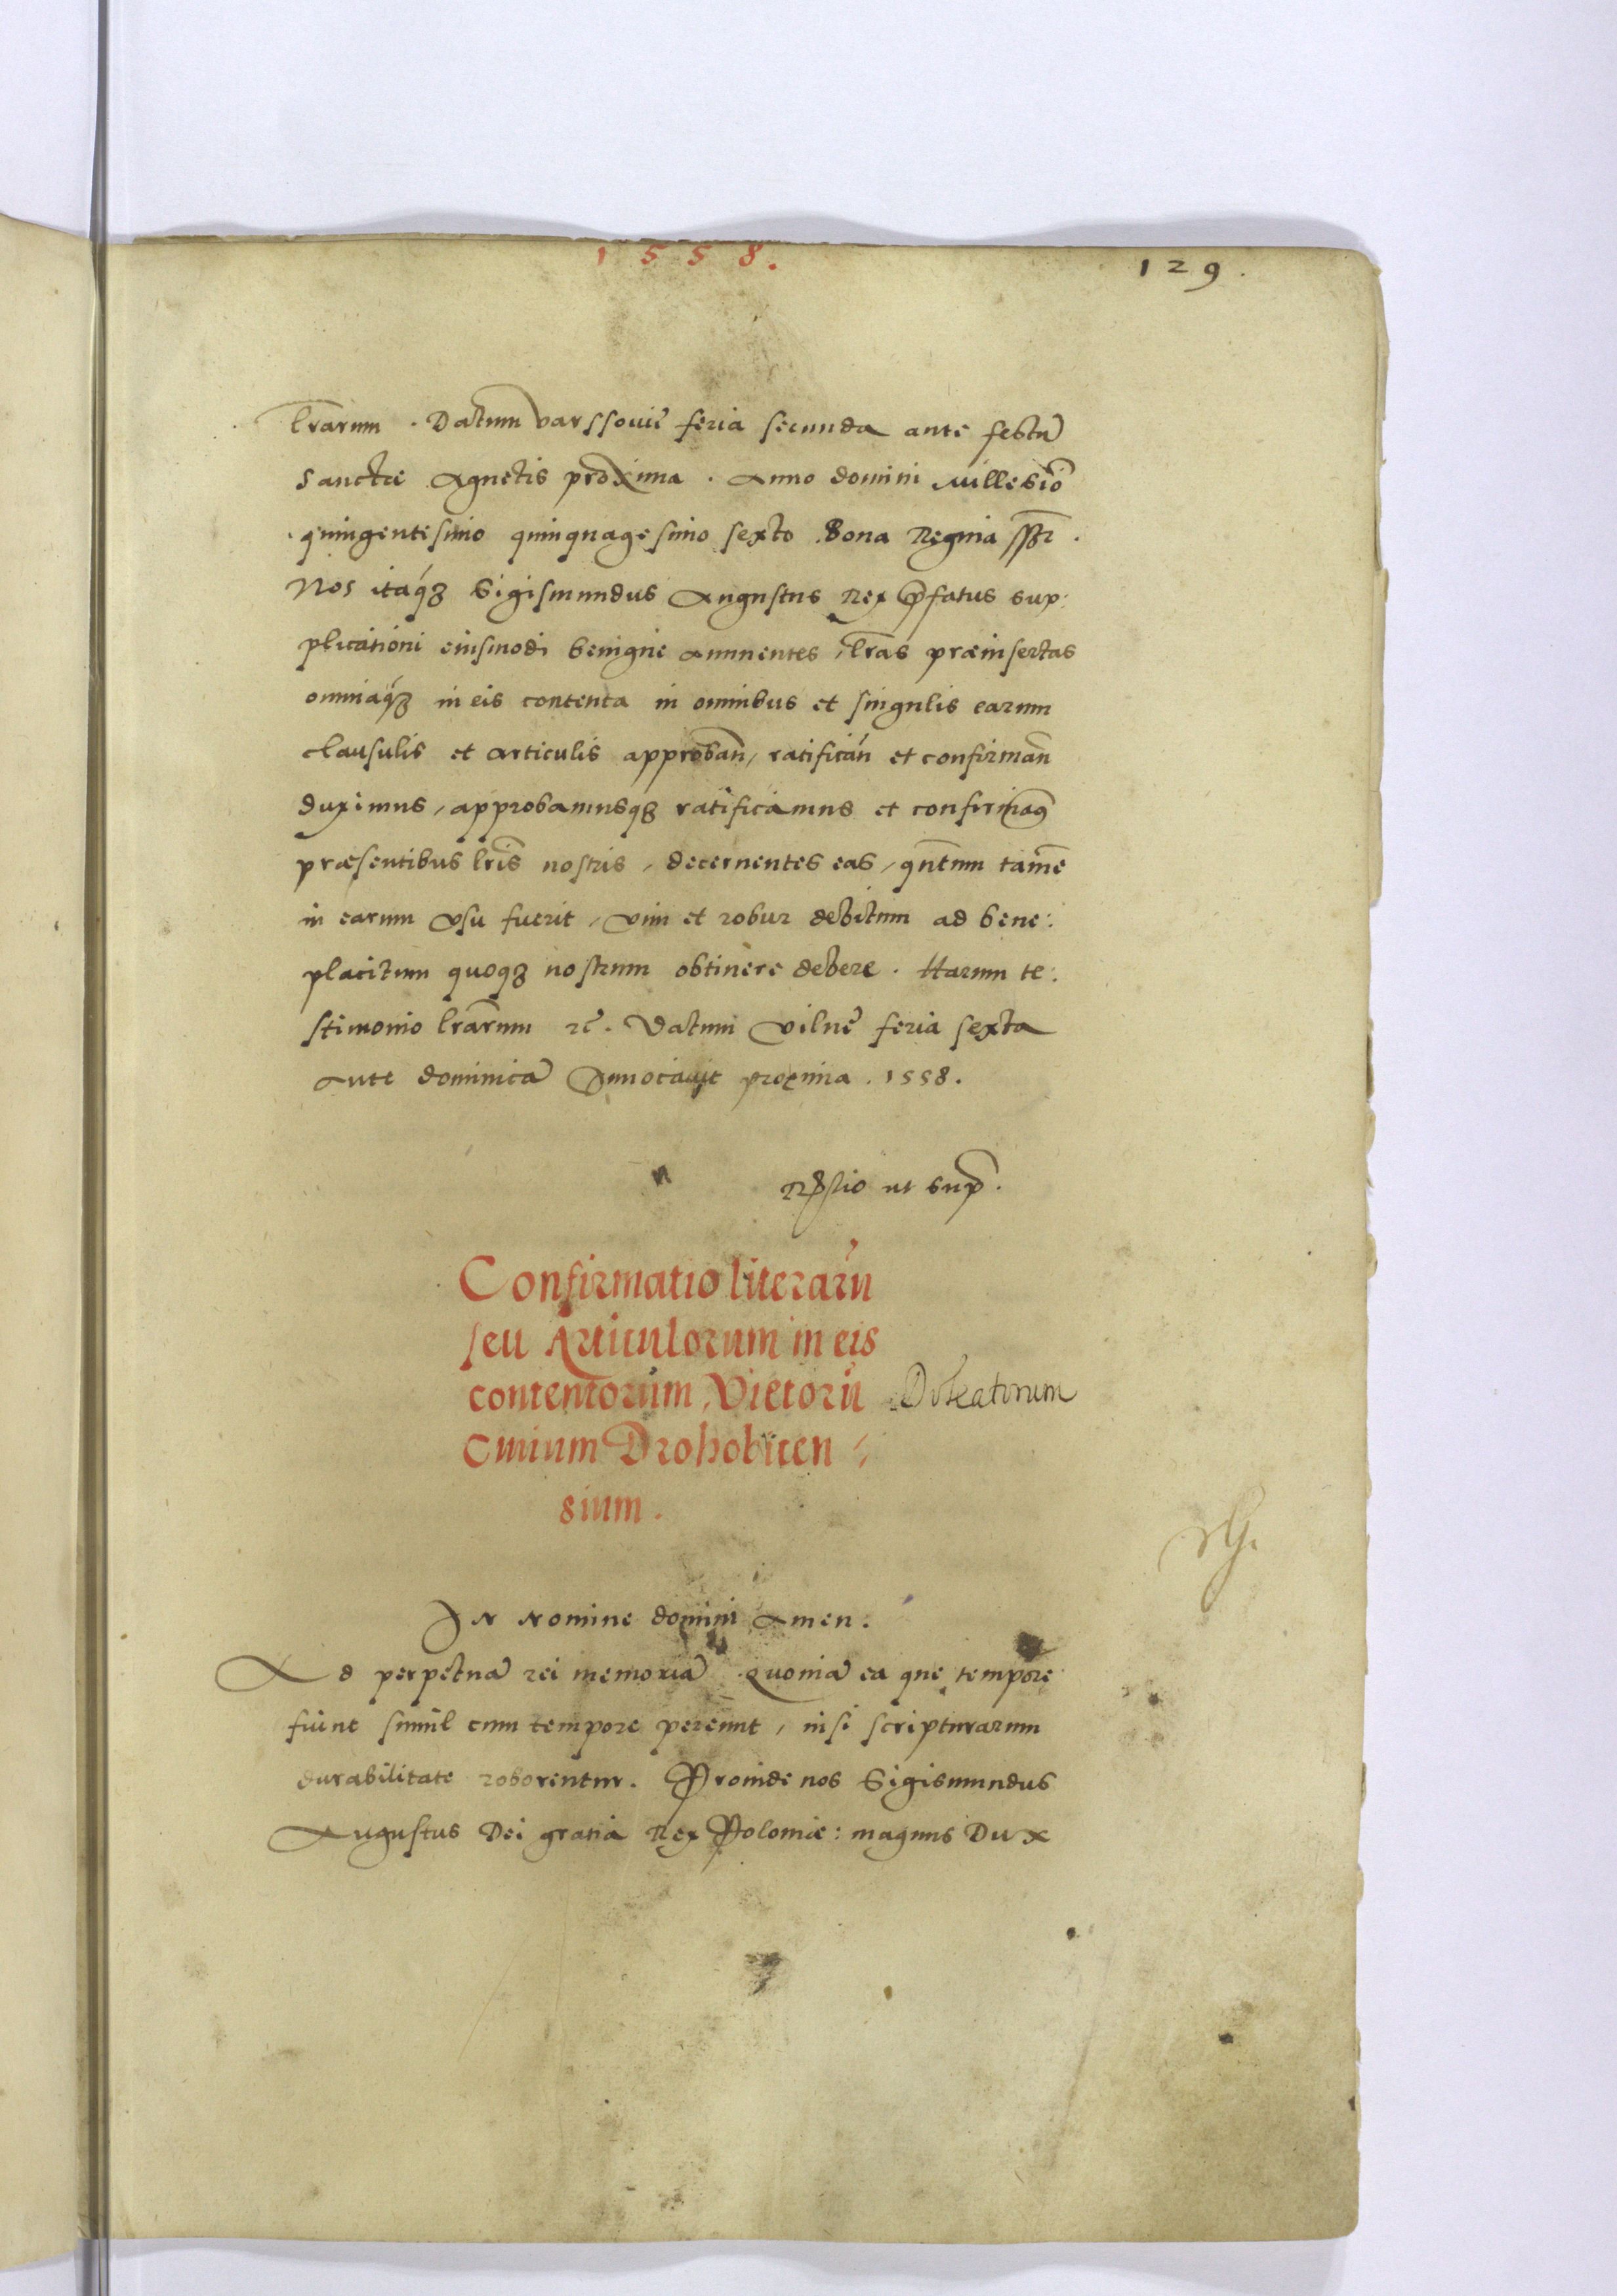 1558.
129.
lrarum. Datum varssouie feria secunda ante festũ
Sanctæ Agnetis proxima. Anno domini Millesĩo
quingentesimo quinquagesimo sexto Bona Regina
Nos itaq3 Sigismundus Augustus Rex p̃fatus sup:
plicationi eiusmodi benigne annuentes, lras præinsertas
omniaq3 in eis contenta in omnibus et singulis earum
clausulis et articulis approban̄, ratifican̄ et confirman̄
duximus, approbamusq3 ratificamus et confirmaꝰ
præsentibus lris nostris, decernentes eas, qn̄tum tamẽ
in earum vsu fuerit, vim et robur debitum ad bene:
placitum quoq3 nostrum obtinere debere. Harum te:
stimonio lrarum rc̄. Datum Vilnẽ feria sexta
Ante dominicã Inuocauit proxima. 1558.
ut sup̃.
Confirmatio literarũ
seu Articulorum in eis
contentorum, Vietorũ Doleatorum
Ciuium Drohobicen=
sium.
In Nomine domini Amen.
Ad perpetuã rei memoriã Quoniã ea que tempore
fiunt simul cum tempore pereunt, nisi scripturarum
durabilitate roborentur. Proinde nos Sigismundus
Augustus Dei gratia Rex Poloniæ: magnus Dux